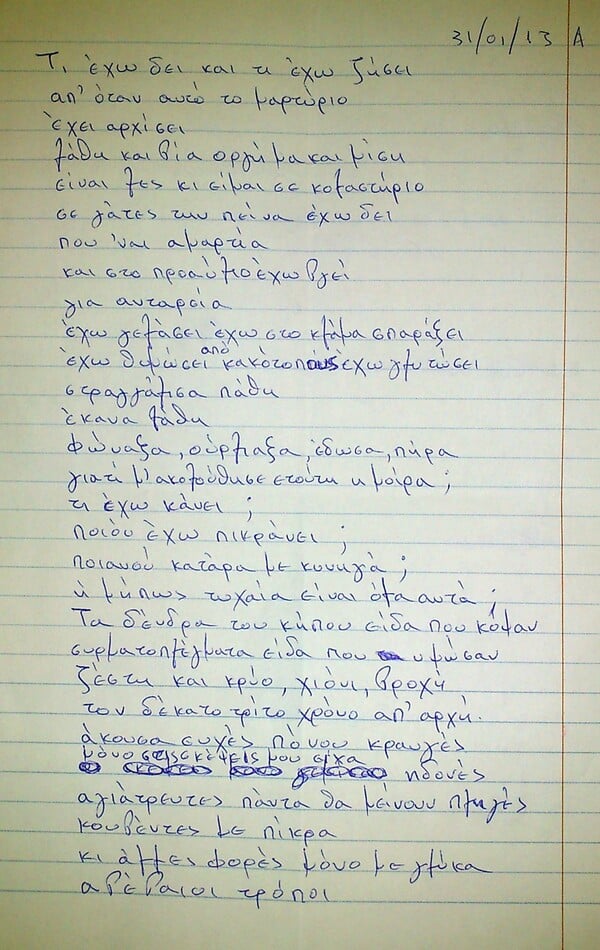 31/01/13 A
Τι έχω δει και τι έχω ζήσει
απ' όταν αυτό το μαρτύριο
έχει αρχίσει
λάθη και βία οργή μα και μίση
είναι λες κι είμαι σε κολαστήριο
σε γάτες την πείνα έχω δει
που 'ναι αμαρτία
και στο προαύλιο έχω βγει
για ανταρσία
έχω γελάσει έχω στο κλάμα σπαράξει
έχω θυμώσει από κακότοπους έχω γλυτώσει
στραγγάλισα πάθη
έκανα λάθη
φώναξα, ούρλιαξα, έδωσα, πήρα
γιατί μ' ακολούθησε ετούτη η μοίρα;
τι έχω κάνει;
ποιόν έχω πικράνει;
ποιανού κατάρα με κυνηγά;
ή μήπως τυχαία είναι όλα αυτά;
Τα δένδρα του κήπου είδα που κόψαν
συρματοπλέγματα είδα που υψώσαν
ζέστη και κρύο, χιόνι, βροχή
τον δέκατο τρίτο χρόνο απ' αρχή.
άκουσα ευχές πόνου κραυγές
μόνο στις σκέψεις μου είχα
ηδονές
αγιάτρευτες πάντα θα μείνουν πληγές
κουβέντες με πίκρα
κι άλλες φορές μόνο με γλύκα
αβέβαιοι τρόποι